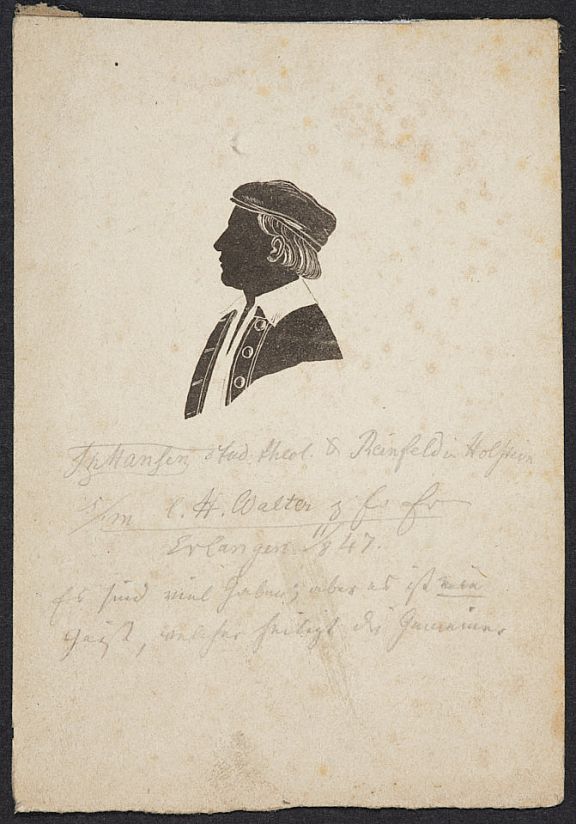 Fr Hansen stud. theol. & Reinfeld in Holstein
s/m l. H. Walter z fr Er
Erlangen 18 11/ 47.
Es sind viel Gaben; aber es ist ein
Geist, welcher heiligt die Gemeine